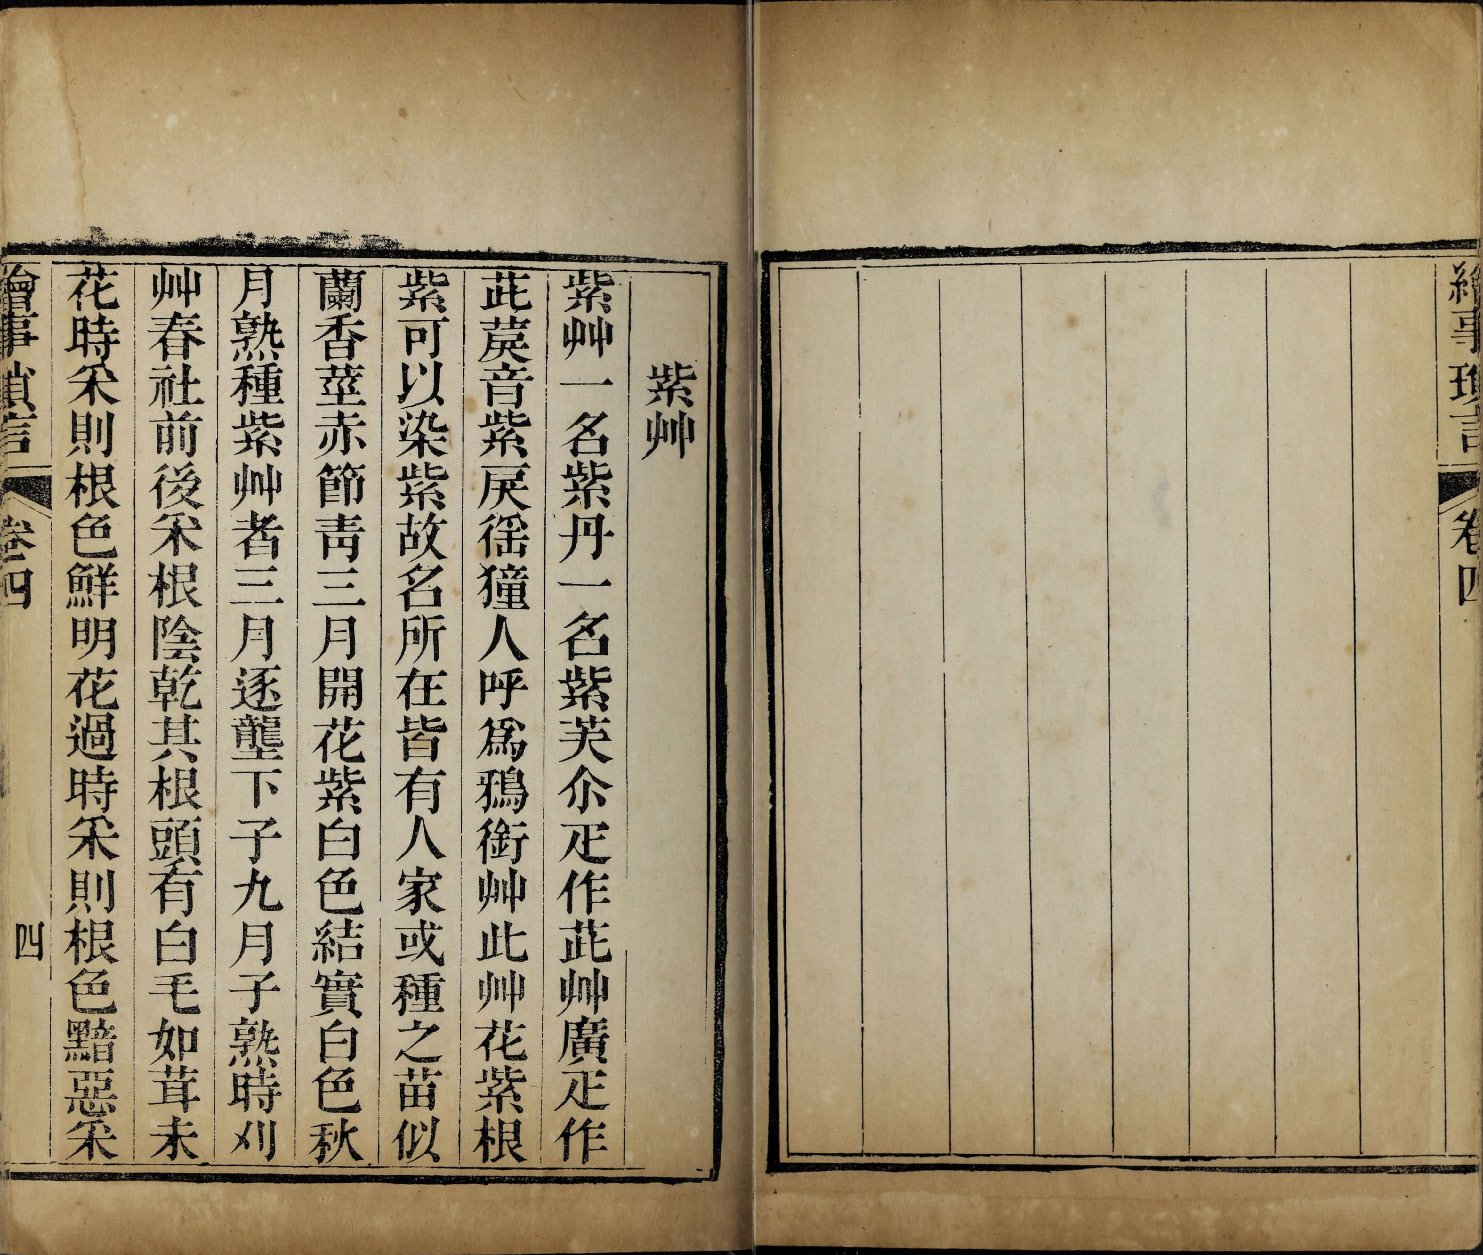 繪事瑣言 卷四
紫艸
紫艸一名紫丹一名紫芺尒疋作茈艸廣疋作
茈䓞音紫戾徭獞人呼爲鴉銜艸此艸花紫根
紫可以染紫故名所在皆有人家或種之苗似
蘭香莖赤節靑三月開花紫白色結實白色秋
月熟種紫艸者三月逐壟下子九月子熟時刈
艸春社前後采根陰乾其根頭有白毛如茸未
花時采則根色鮮明花過時采則根色黯惡采
繪事瑣言 卷四 四